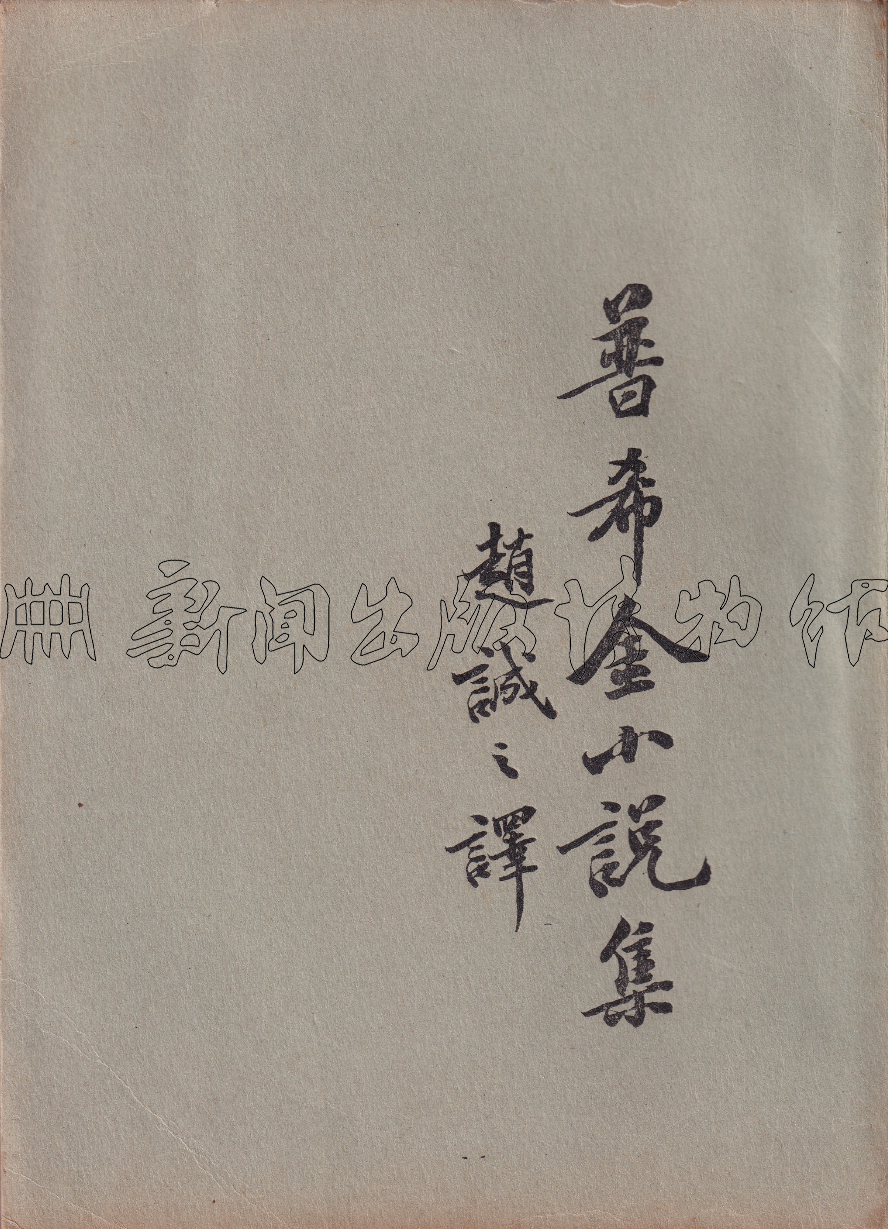 普希金小説集
趙誠之譯
新闻出版博物馆